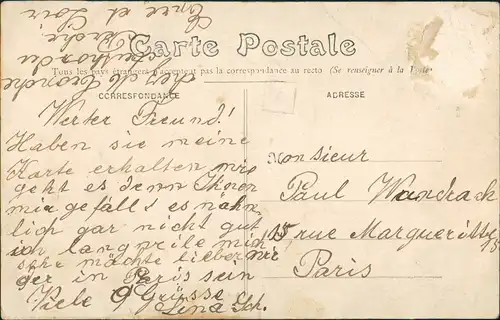 Carte Postale
Tous les pays étrangers n'acceptent pas la correspondance au recto (Se renseigner à la Poste
CORRESPONDANCE
ADRESSE
Werter Freund!
Haben sie meine
Karte erhalten wie
geht es denn Ihnen
mir gefälls es nähm-
lich gar nicht gut
ich langwile mich
sehr möchte lieber wie
der in Paris sein
Viele Grüsse
Lina Sch.
Monsieur
Paul Wandrach
15, rue Margueritte
15
Paris
Eure et Loir